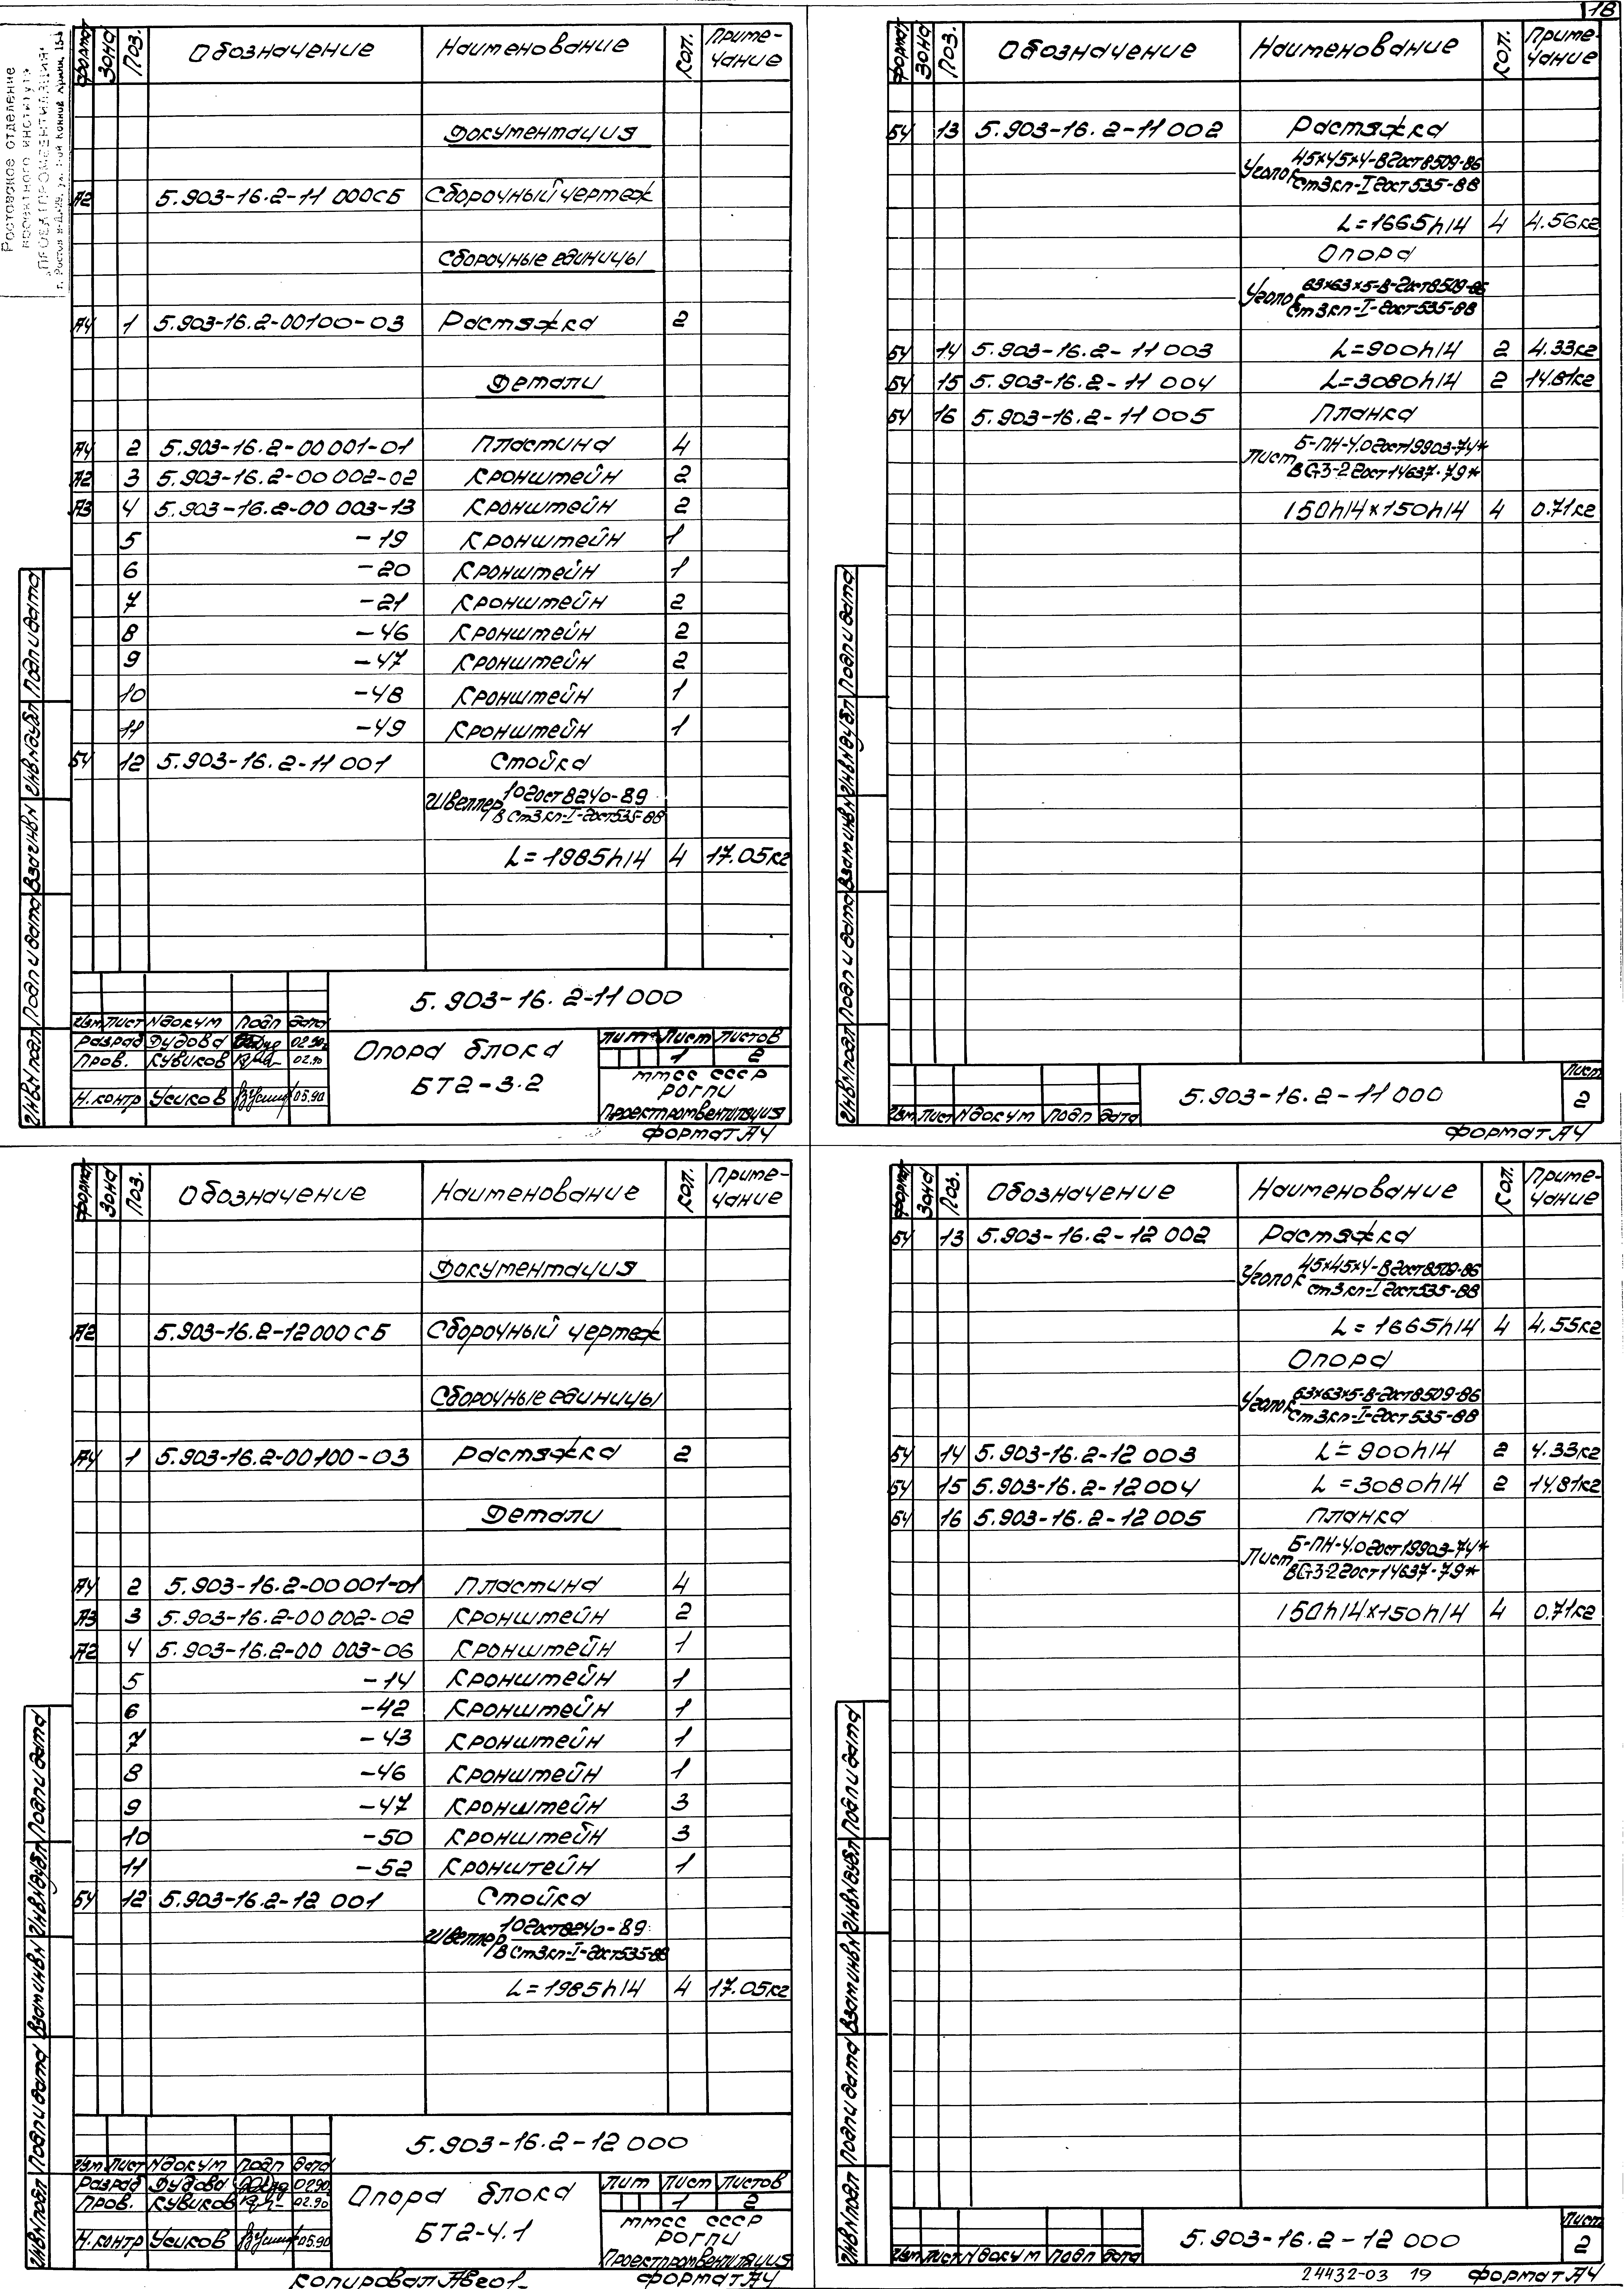 18
Ростовское отделение
проектного института
"ПРОЕКТПРОМВЕНТИЛЯЦИЯ"
Формат Зона Поз. Обозначение Наименование Кол. Примечание
Документация
А2 5.903-16.2-11 000СБ Сборочный чертеж
Сборочные единицы
А4 1 5.903-16.2-00100-03 Растяжка 2
Детали
А4 2 5.903-16.2-00 001-01 Пластина 4
А2 3 5.903-16.2-00 002-02 Кронштейн 2
А3 4 5.903-16.2-00 003-13 Кронштейн 2
5 -19 Кронштейн 1
6 -20 Кронштейн 1
7 -21 Кронштейн 2
8 -46 Кронштейн 2
9 -47 Кронштейн 2
10 -48 Кронштейн 1
11 -49 Кронштейн 1
БЧ 12 5.903-16.2-11 001 Стойка
Швеллер 10 ГОСТ 8240-89
В Ст3кп-I-ГОСТ535-88
L=1985h14 4 17.05кг
5.903-16.2-11 000
Изм Лист N докум Подп Дата
Разраб Дудова 02.90
Пров. Кувиков 02.90
Н.контр Усиков 05.90
Опора блока
БТ2-3.2
Лит Лист Листов
1 2
ММСС СССР
РОГПИ
Проектпромвентиляция
Формат А4
Инв N подл Подп и дата Взам инв N Инв N дубл Подп и дата
Формат Зона Поз. Обозначение Наименование Кол. Примечание
БЧ 13 5.903-16.2-11 002 Растяжка
Уголок 45×45×4-В ГОСТ 8509-86
Ст3кп-I ГОСТ 535-88
L=1665h14 4 4.56кг
Опора
Уголок 63×63×5-В-ГОСТ8509-86
Ст3кп-I-ГОСТ535-88
БЧ 14 5.903-16.2-11 003 L=900h14 2 4.33кг
БЧ 15 5.903-16.2-11 004 L=3080h14 2 14.81кг
БЧ 16 5.903-16.2-11 005 Планка
Лист Б-ПН-4.0 ГОСТ19903-74*
ВСт3-2 ГОСТ14637-79*
150h14×150h14 4 0.71кг
Изм Лист N докум Подп Дата
5.903-16.2-11 000
Лист
2
Формат А4
Инв N подл Подп и дата Взам инв N Инв N дубл Подп и дата
Формат Зона Поз. Обозначение Наименование Кол. Примечание
Документация
А2 5.903-16.2-12000СБ Сборочный чертеж
Сборочные единицы
А4 1 5.903-16.2-00100-03 Растяжка 2
Детали
А4 2 5.903-16.2-00 001-01 Пластина 4
А3 3 5.903-16.2-00 002-02 Кронштейн 2
А2 4 5.903-16.2-00 003-06 Кронштейн 1
5 -14 Кронштейн 1
6 -42 Кронштейн 1
7 -43 Кронштейн 1
8 -46 Кронштейн 1
9 -47 Кронштейн 3
10 -50 Кронштейн 3
11 -52 Кронштейн 1
БЧ 12 5.903-16.2-12 001 Стойка
Швеллер 10 ГОСТ 8240-89
В Ст3кп-I-ГОСТ535-88
L=1985h14 4 17.05кг
5.903-16.2-12 000
Изм Лист N докум Подп Дата
Разраб Дудова 02.90
Пров. Кувиков 02.90
Н.контр Усиков 05.90
Опора блока
БТ2-4.1
Лит Лист Листов
1 2
ММСС СССР
РОГПИ
Проектпромвентиляция
Копировал
Формат А4
Инв N подл Подп и дата Взам инв N Инв N дубл Подп и дата
Формат Зона Поз. Обозначение Наименование Кол. Примечание
БЧ 13 5.903-16.2-12 002 Растяжка
Уголок 45×45×4-В ГОСТ8509-86
Ст3кп-I ГОСТ535-88
L=1665h14 4 4.55кг
Опора
Уголок 63×63×5-В-ГОСТ8509-86
Ст3кп-I-ГОСТ535-88
БЧ 14 5.903-16.2-12 003 L=900h14 2 4.33кг
БЧ 15 5.903-16.2-12 004 L=3080h14 2 14.81кг
БЧ 16 5.903-16.2-12 005 Планка
Лист Б-ПН-4.0 ГОСТ19903-74*
ВСт3-2 ГОСТ14637-79*
150h14×150h14 4 0.71кг
Изм Лист N докум Подп Дата
5.903-16.2-12 000
Лист
2
24432-03 19 Формат А4
Инв N подл Подп и дата Взам инв N Инв N дубл Подп и дата